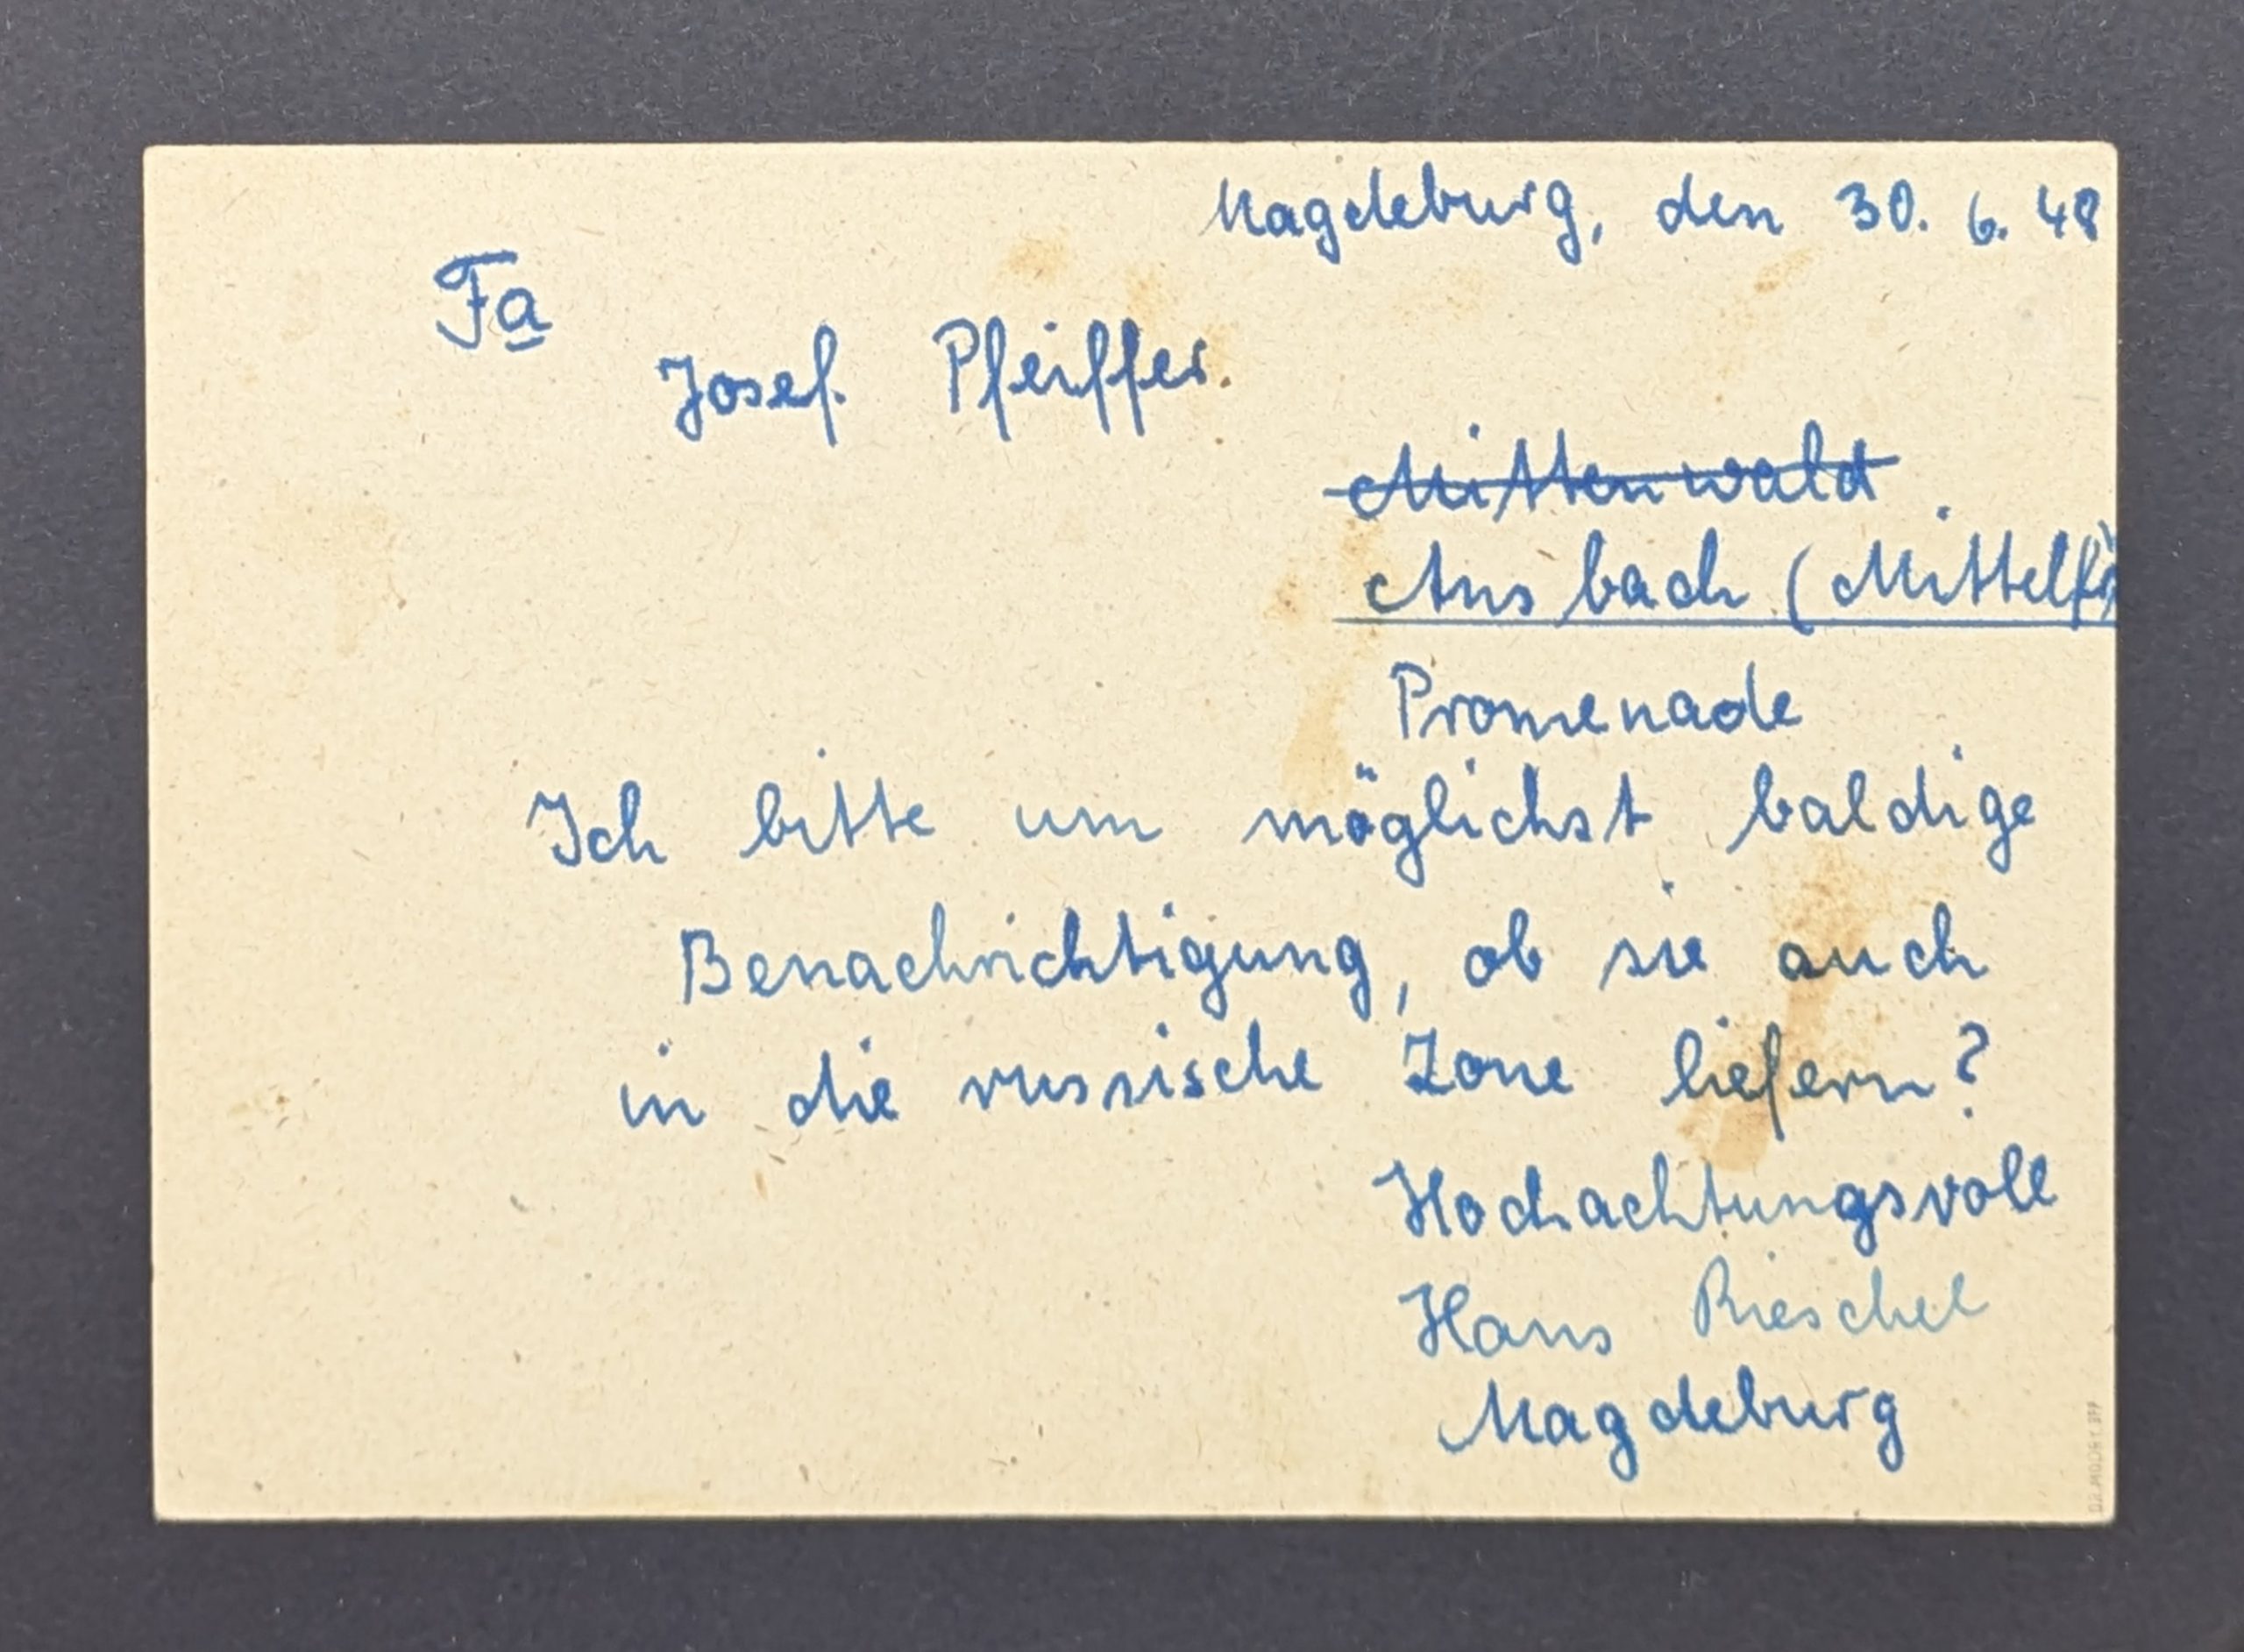 Magdeburg, den 30. 6. 48
Fa
Josef Pfeiffer.
Mittenwald
Ansbach (Mittelfr)
Promenade
Ich bitte um möglichst baldige
Benachrichtigung, ob sie auch
in die russische Zone liefern?
Hochachtungsvoll
Hans Rieschel
Magdeburg